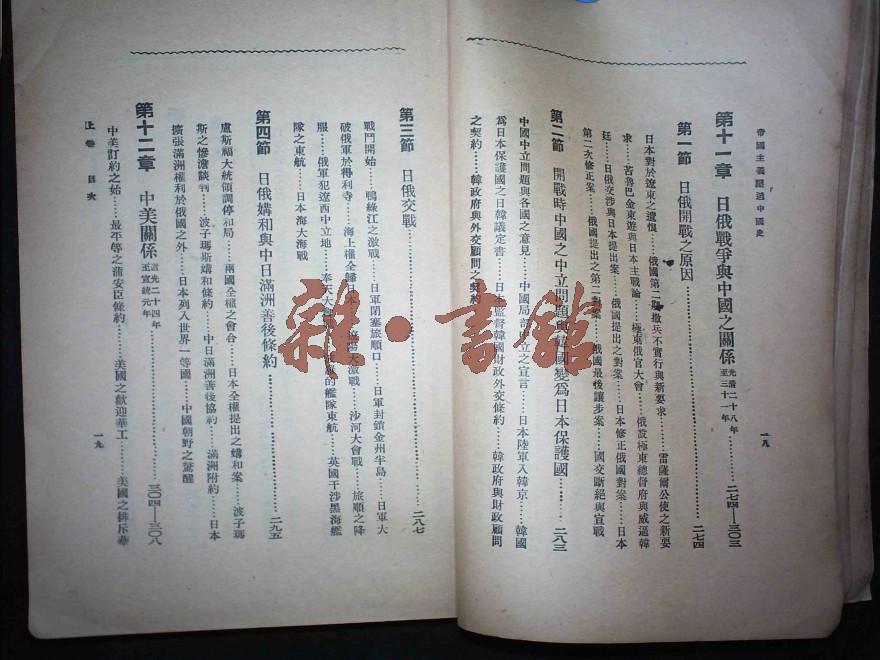 帝國主義壓迫中國史
第十一章 日俄戰爭與中國之關係 光清二十八年至三十一年……二七四—三〇三
第一節 日俄開戰之原因……二七四
日本對於遼東之遺恨……俄國第二期撤兵不實行與新要求……雷薩爾公使之新要
求……苦魯巴金東遊與日本主戰論……極東俄官大會……俄設極東總督府與威逼韓
廷……日俄交涉與日本提出案……俄國提出之對案……日本修正俄國對案……日本
第二次修正案……俄國提出之第二對案……俄國最後讓步案……國交斷絕與宣戰
第二節 開戰時中國之中立問題與韓國變爲日本保護國……二八三
中國中立問題與各國之意見……中國局部中立之宣言……日本陸軍入韓京……韓國
爲日本保護國之日韓議定書……日本監督韓國財政外交條約……韓政府與財政顧問
之契約……韓政府與外交顧問之契約
一八
第三節 日俄交戰……二八七
戰鬥開始……鴨綠江之激戰……日軍閉塞旅順口……日軍封鎖金州半島……日軍大
破俄軍於得利寺……海上權全歸日本……遼陽大激戰……沙河大會戰……旅順之降
服……俄軍犯遼西中立地……奉天大會戰……的艦隊東航……英國干涉黑海艦
隊之東航……日本海大海戰
第四節 日俄媾和與中日滿洲善後條約……二九五
盧斯福大統領調停和局……兩國全權之會合……日本全權提出之媾和案……波子瑪
斯之慘澹談判……波子瑪斯媾和條約……中日滿洲善後協約……滿洲附約……日本
擴張滿洲權利於俄國之外……日本列入世界一等國……中國朝野之驚醒
第十二章 中美關係 道光二十四年至宣統元年……三〇四—三〇八
中美訂約之始……最平等之蒲安臣條約……美國之歡迎華工……美國之排斥華
上卷 目次
一九
雜·書館